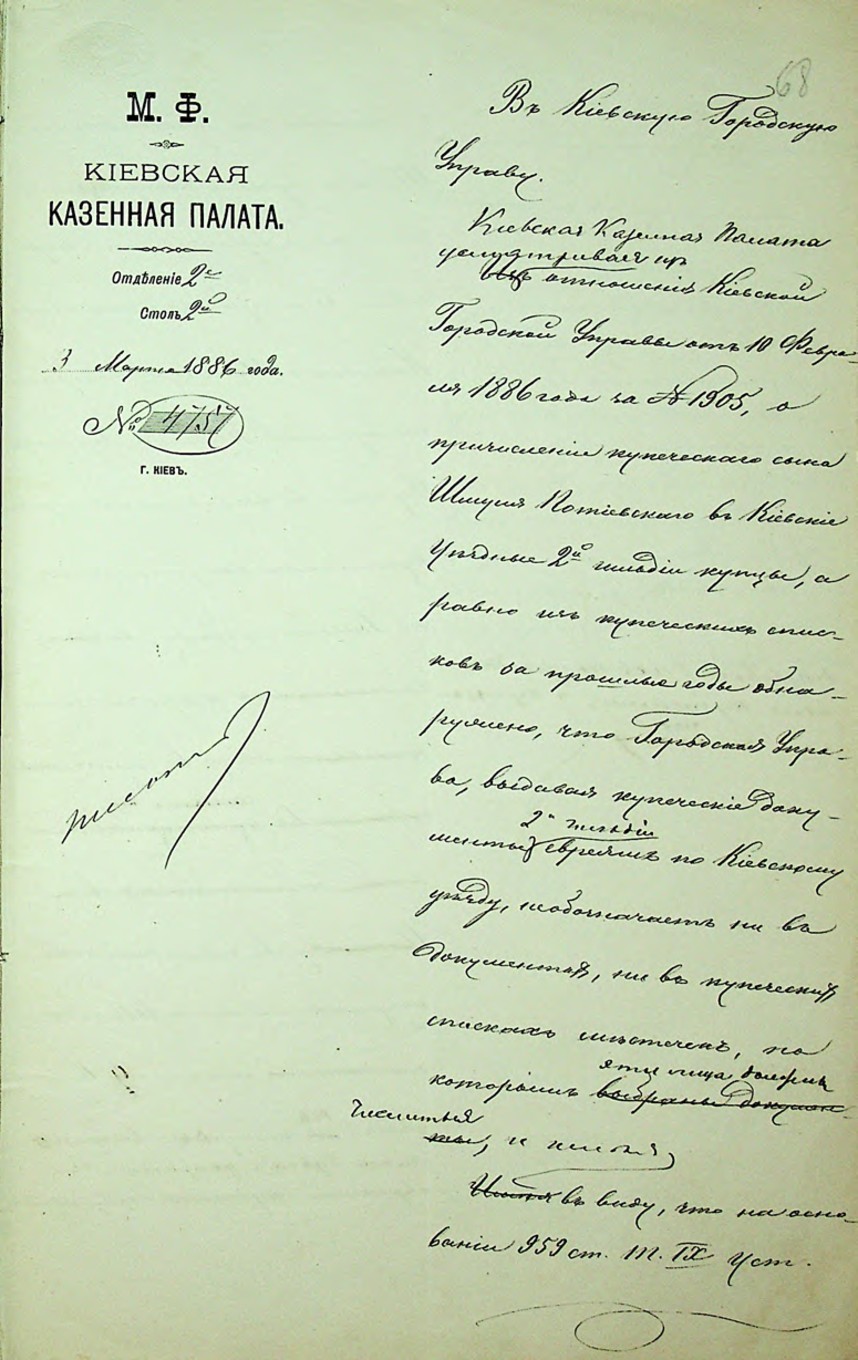 68
М. Ф.
КІЕВСКАЯ
КАЗЕННАЯ ПАЛАТА.
Отдѣленіе 2е
Столъ 2й
3 Марта 1886 года.
№ 4757
Г. КІЕВЪ.
Въ Кіевскую Городскую
Управу.
Кіевская Казенная Палата
усматривая изъ
отношенія Кіевской
Городской Управы отъ 10 Февра-
ля 1886 года за № 1905, о
причисленіи купеческаго сына
Шмуля Потіевскаго въ Кіевскіе
Уѣздные 2й гильдіи купцы, а
равно изъ купеческихъ спис-
ковъ за прошлые годы обна-
ружено, что Городская Упра-
ва, выдавая купеческіе доку-
2й гильдіи
менты евреямъ по Кіевскому
уѣзду, не обозначаетъ ни въ
документахъ, ни въ купеческихъ
спискахъ мѣстечекъ, по
эти лица должны
которымъ выбраны докумен-
числиться
ты, и имѣя
Имѣя въ виду, что на осно-
ваніи 959 ст. т. IX Уст.